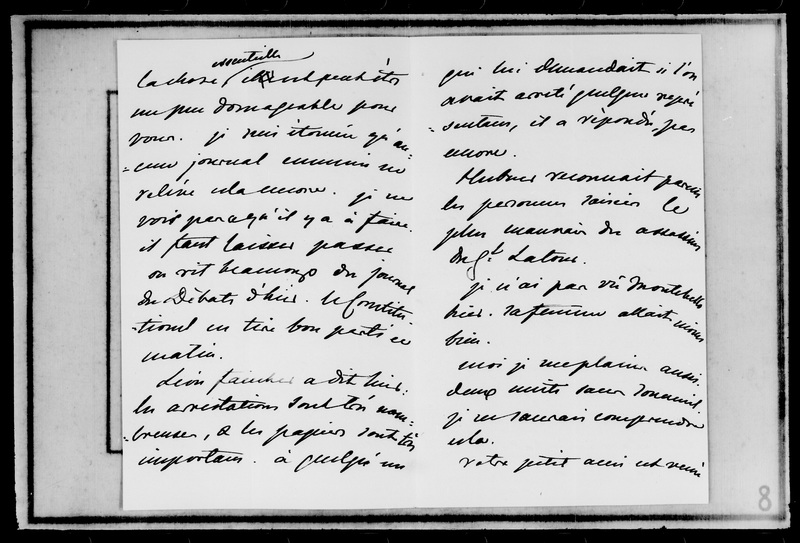 essentielle
la chose est peut être
un peu domageable pour
vous. je suis étonnée qu'au-
=cun journal ennemi ne
relève cela encore. je ne
vois pas ce qu'il y a à faire.
il faut laisser passer
on rit beaucoup du journal
des Débats d'hier. le Constitu-
-tionel en tire bon parti ce
matin.
Léon faucher a dit hier.
les arrestations sont très nom-
-breuses, & les papiers sont très
importans. à quelqu'un
qui lui demandait si l'on
avait arrêté quelque repré
-sentans, il a répondu, pas
encore.
Hubner reconnait parmi
les personnes saisies le
plus mauvais des assassins
du Gl Latour.
je n'ai pas vu Montebello
hier. sa femme allait moins
bien.
moi je me plains aussi.
deux nuits sans sommeil.
je ne saurais comprendre
cela.
votre petit ami est venu
8